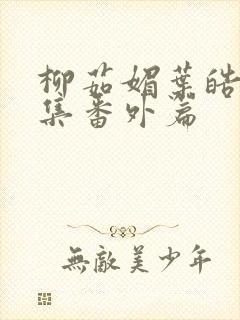 柳茹媚葉皓
集番外篇
無敵美少年